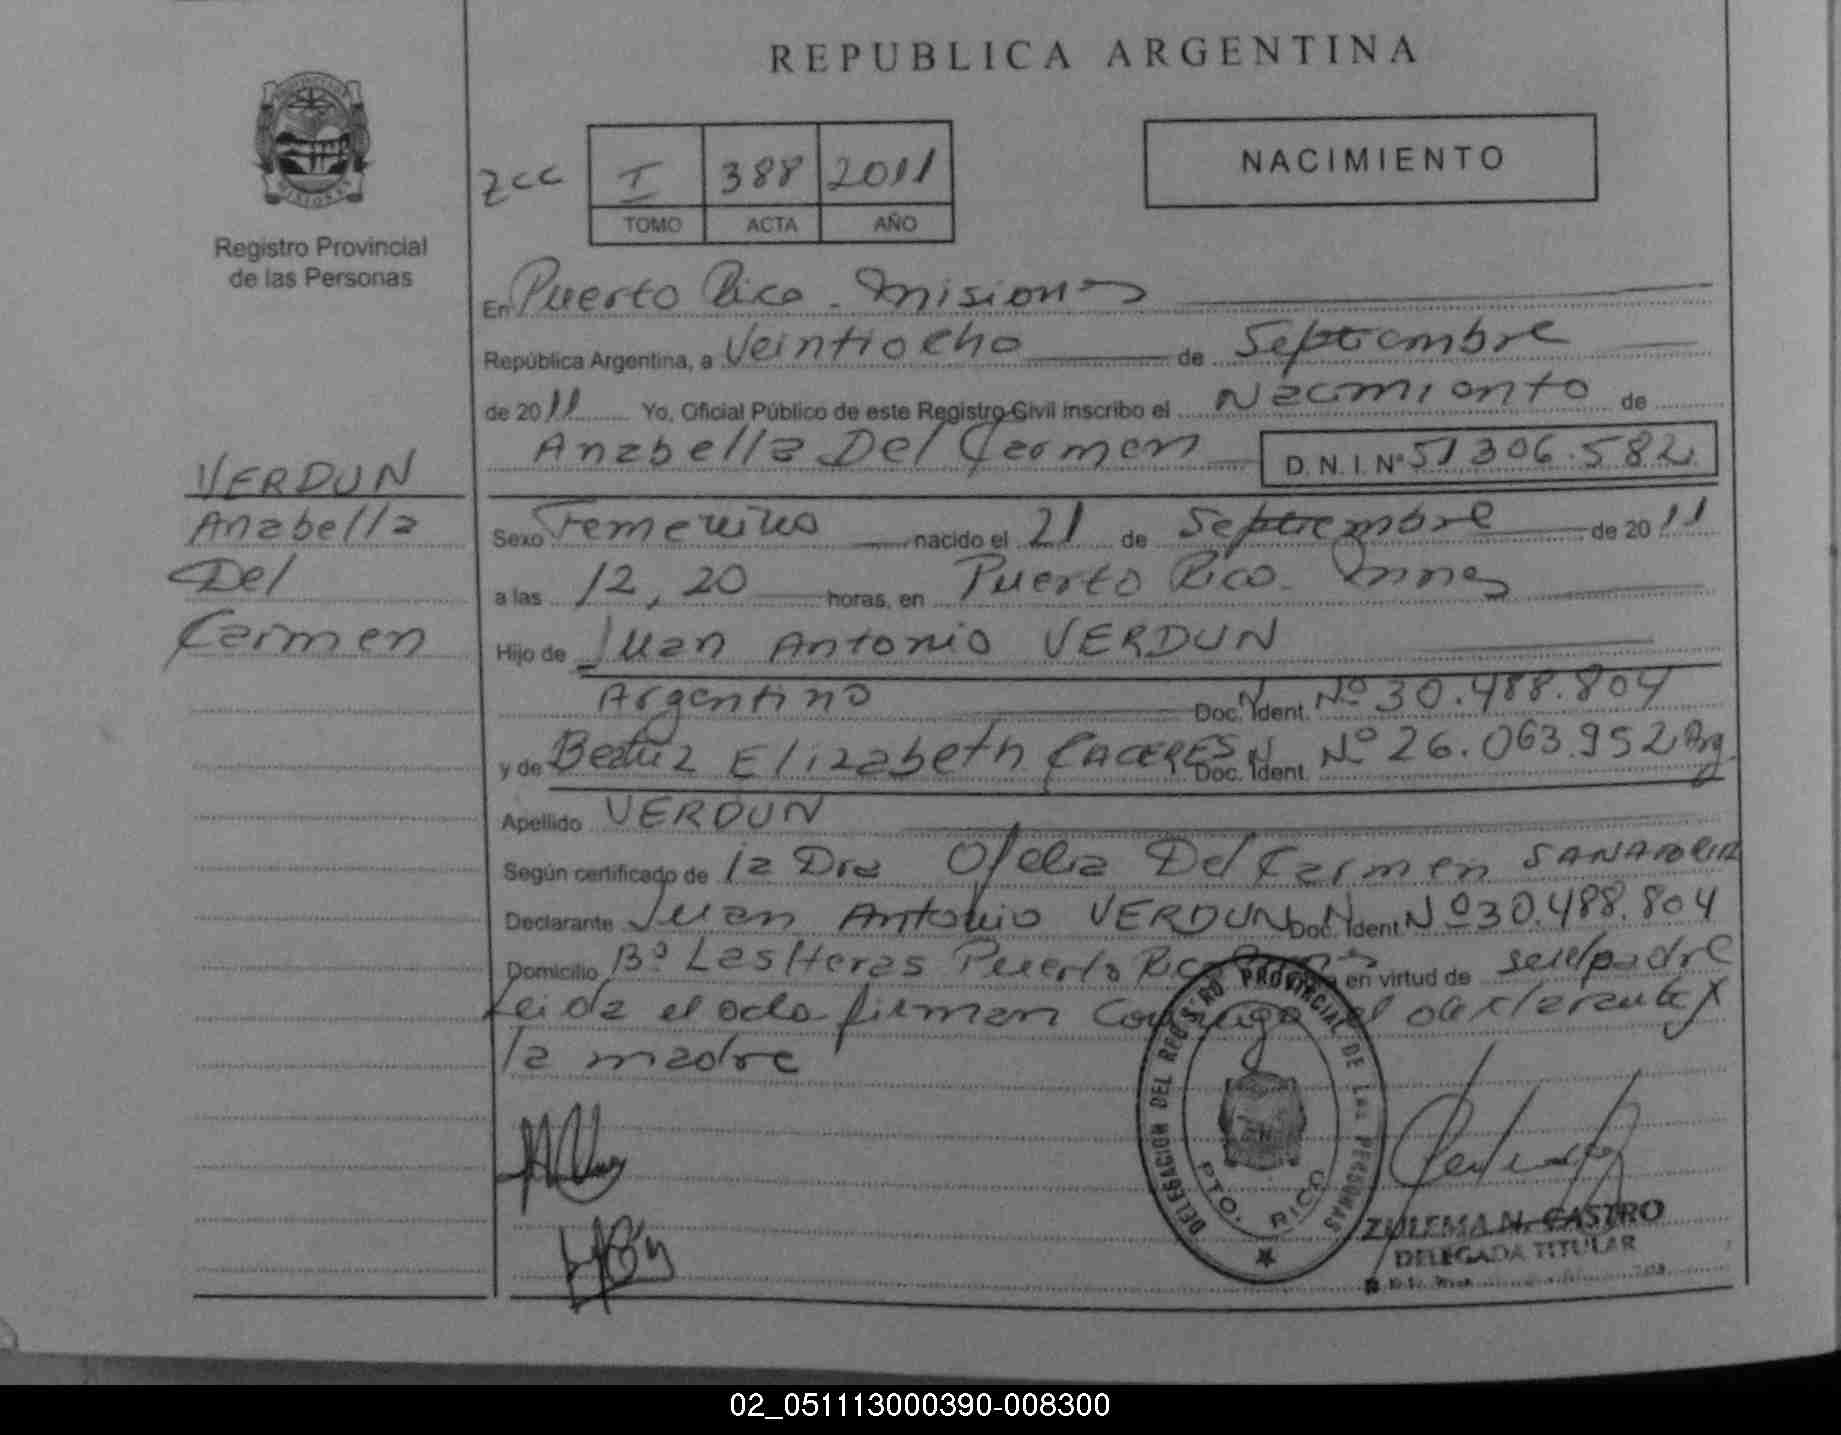 REPUBLICA ARGENTINA
MISIONES
Registro Provincial
de las Personas
zcc
I 388 2011
TOMO ACTA AÑO
NACIMIENTO
En Puerto Rico - Misiones
República Argentina, a Veintiocho de Septiembre
de 2011 Yo, Oficial Público de este Registro Civil inscribo el Nacimiento de
Anabella Del Carmen D. N. I. Nº 51306.582
VERDUN
Anabella
Del
Carmen
Sexo Femenino nacido el 21 de Septiembre de 2011
a las 12,20 horas, en Puerto Rico - Mnes
Hijo de Juan Antonio VERDUN
Argentino Doc. N Ident. Nº 30.488.804
y de Beatriz Elizabeth CACERES Doc. N Ident. Nº 26.063.952 Arg.
Apellido VERDUN
Según certificado de la Dra Ofelia Del Carmen SANABRIA
Declarante Juan Antonio VERDUN Doc. N Ident. Nº 30.488.804
Domicilio Bº Las Heras Puerto Rico en virtud de ser el padre
Leida el acta firman conmigo el declarante y
la madre
DELEGACION DEL REGISTRO PROVINCIAL DE LAS PERSONAS
PTO. RICO
ZULEMA N. CASTRO
DELEGADA TITULAR
02_051113000390-008300